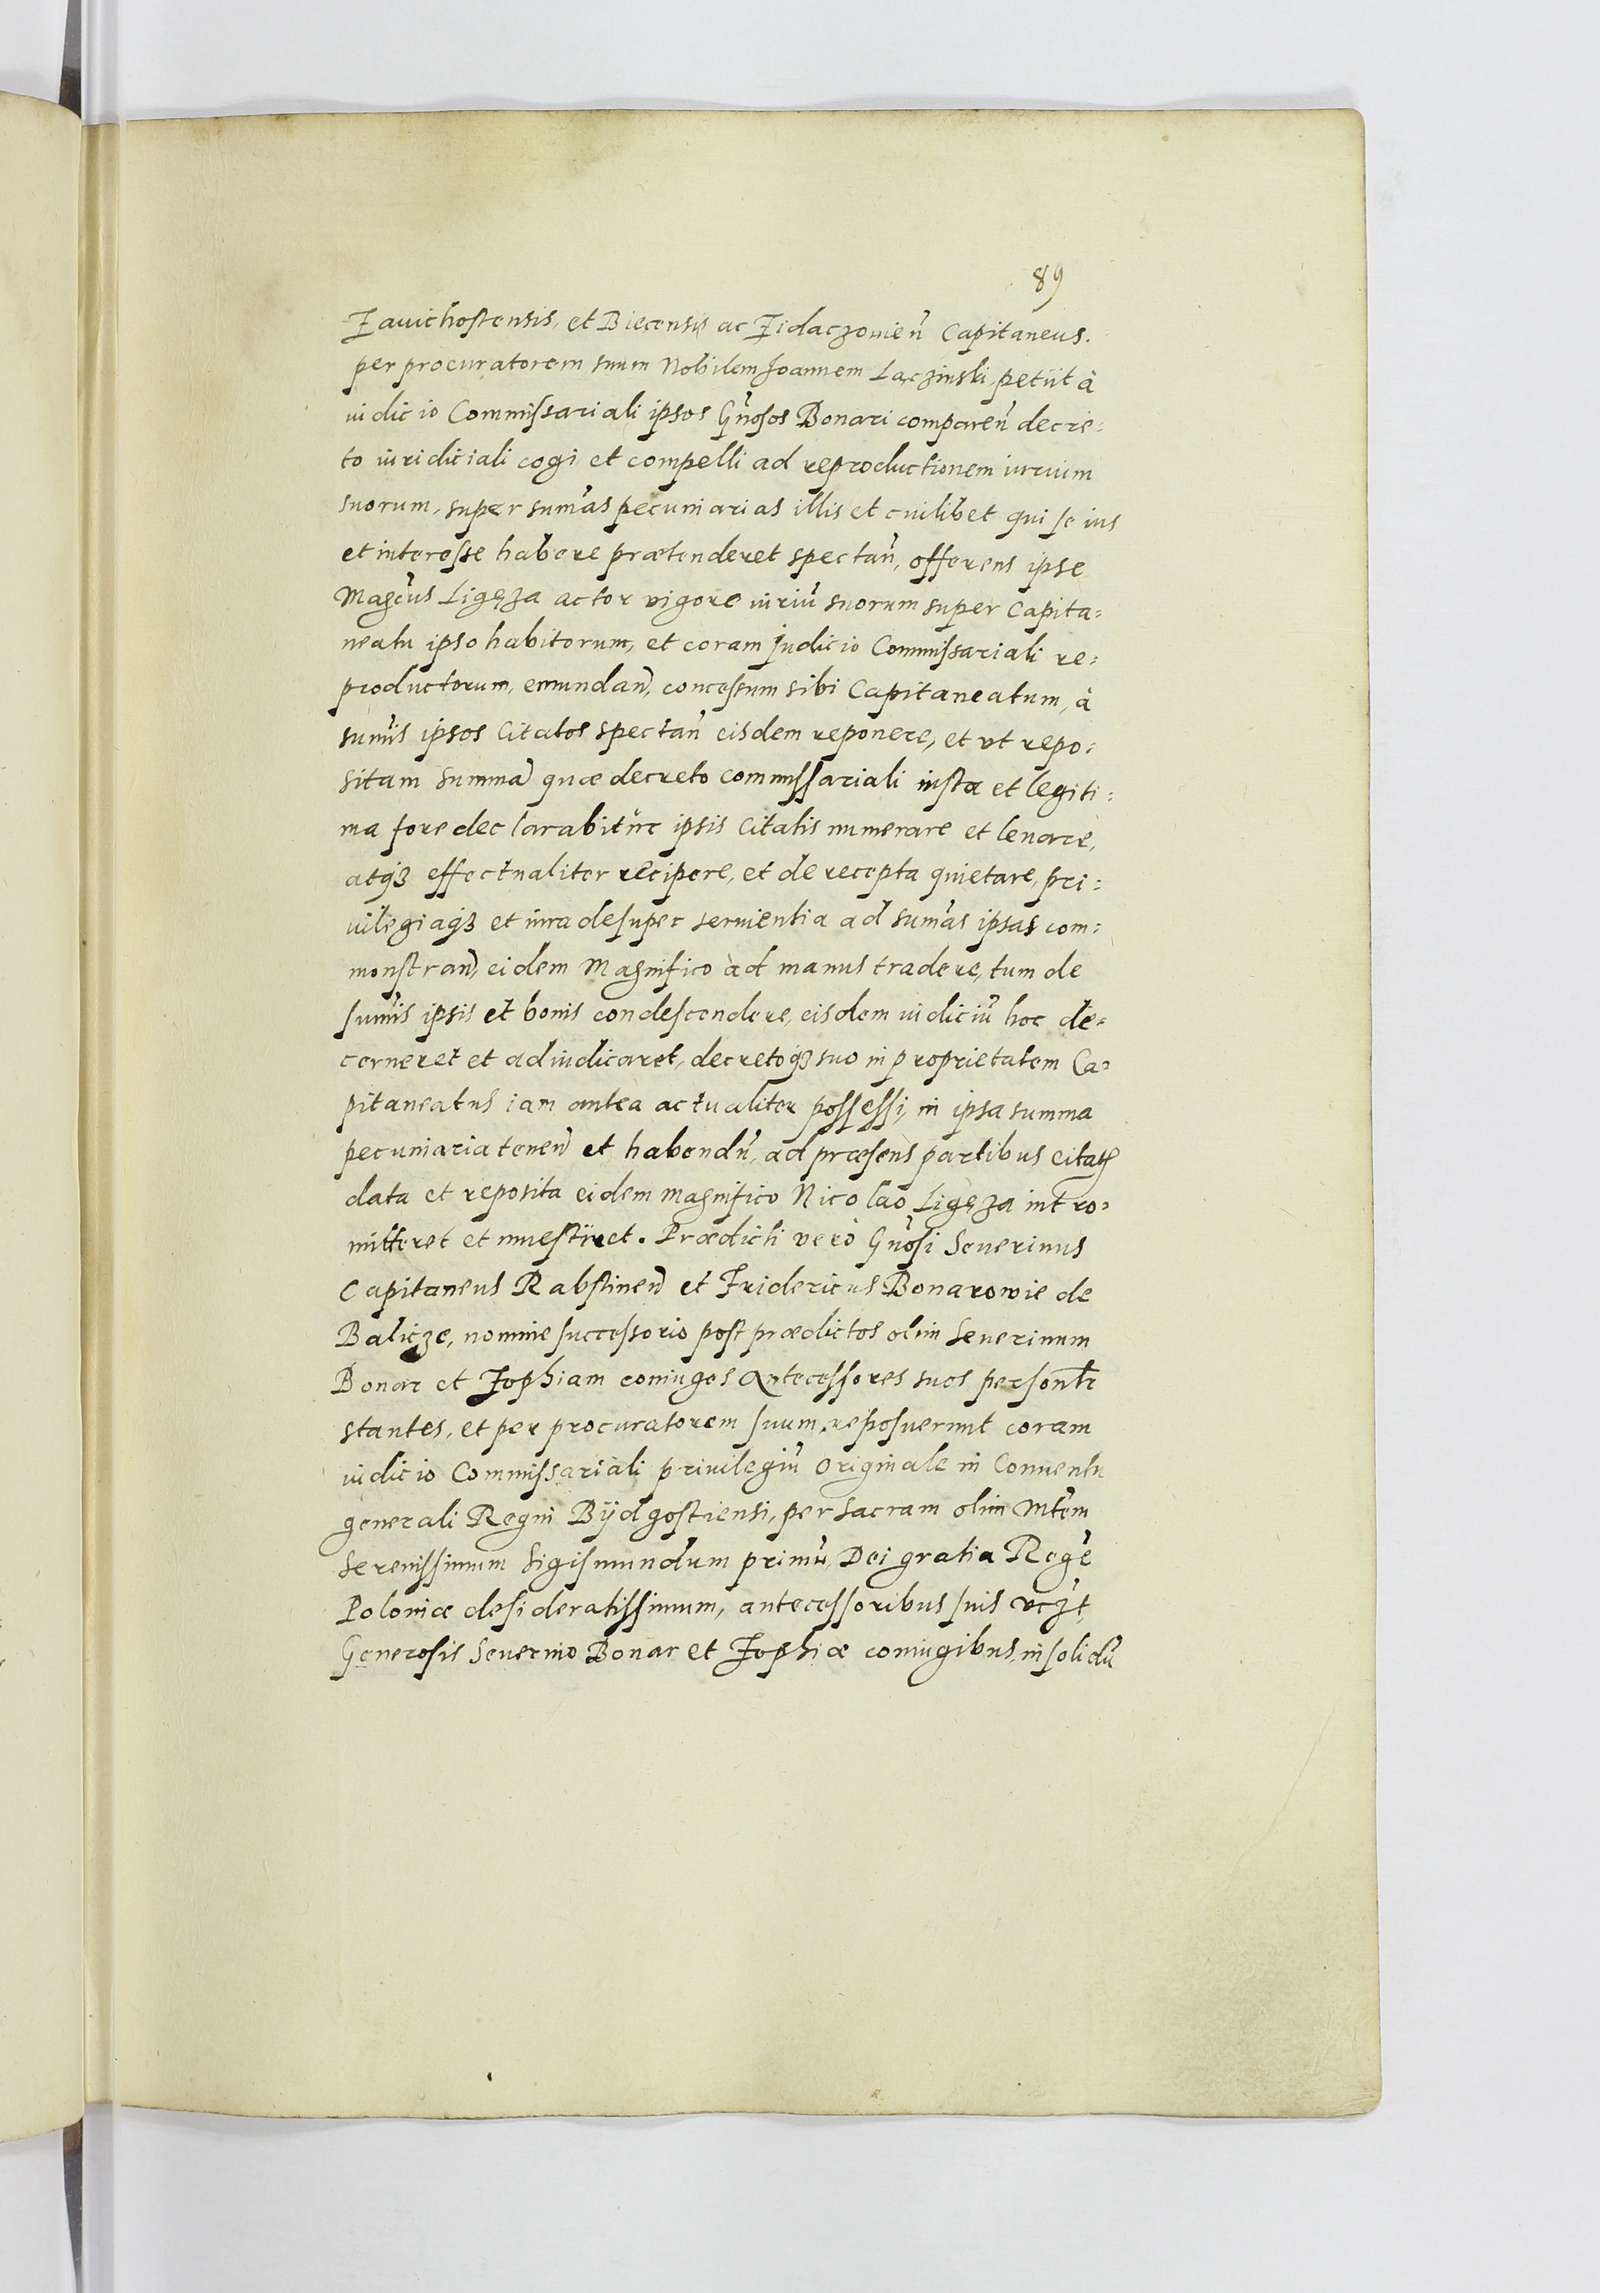 89
Zauichostensis, et Biecensis ac Zidaczouien̄ Capitaneus.
per procuratorem suum Nobilem Joannem Lączinski, petiit à
iudicio Commissariali ipsos Gn̄osos Bonari comparen̄ decre-
to iuridiciali cogi et compelli ad reproductionem iurium
suorum, super sum̄as pecuniarias illis et cuilibet qui se ius
et interesse habere prætenderet spectan̄, offerens ipse
Magc̄us Ligęza actor vigore iuriū suorum super Capita-
neatu ipso habitorum, et coram Judicio Commissariali re-
productorum, emundan̄, concessum sibi Capitaneatum, à
sum̄is ipsos Citatos spectan̄ eisdem reponere, et vt repo-
sitam summā quæ decreto commissariali iusta et legiti-
ma fore declarabitur ipsis Citatis numerare et leuare,
atq̨ȝ effectualiter recipere, et de recepta quietare, pri-
uilegiaq̨ȝ et iura desuper seruientia ad sum̄as ipsas com-
monstran̄, eidem Magnifico ad manus tradere, tum de
sum̄is ipsis et bonis condescendere, eisdem iudiciū hoc de-
cerneret et adiudicaret, decretoq̨ȝ suo in proprietatem Ca-
pitaneatus iam antea actualiter possessi, in ipsa summa
pecuniaria tenen̄ et habendū, ad præsens partibus citatꝭ
data et reposita eidem magnifico Nicolao Ligęza intro-
mitteret et inuestiret. Prædicti verò Gn̄osi Seuerinus
Capitaneus Rabstinen̄ et Fridericus Bonarowie de
Balicze, nomine successorio post prædictos olim Seuerinum
Bonar et Zophiam coniuges antecessores suos personlr̄
stantes, et per procuratorem suum, reposuerunt coram
iudicio Commissariali priuilegiū originale in Conuentu
generali Regni Bÿdgostiensi, per sacram olim Mtem̄
serenissimum Sigismundum primū, Dei gratia Regē
Poloniæ desideratissimum, antecessoribus suis vcz̄t,
Generosis Seuerino Bonar et Zophiæ coniugibus, in solidū